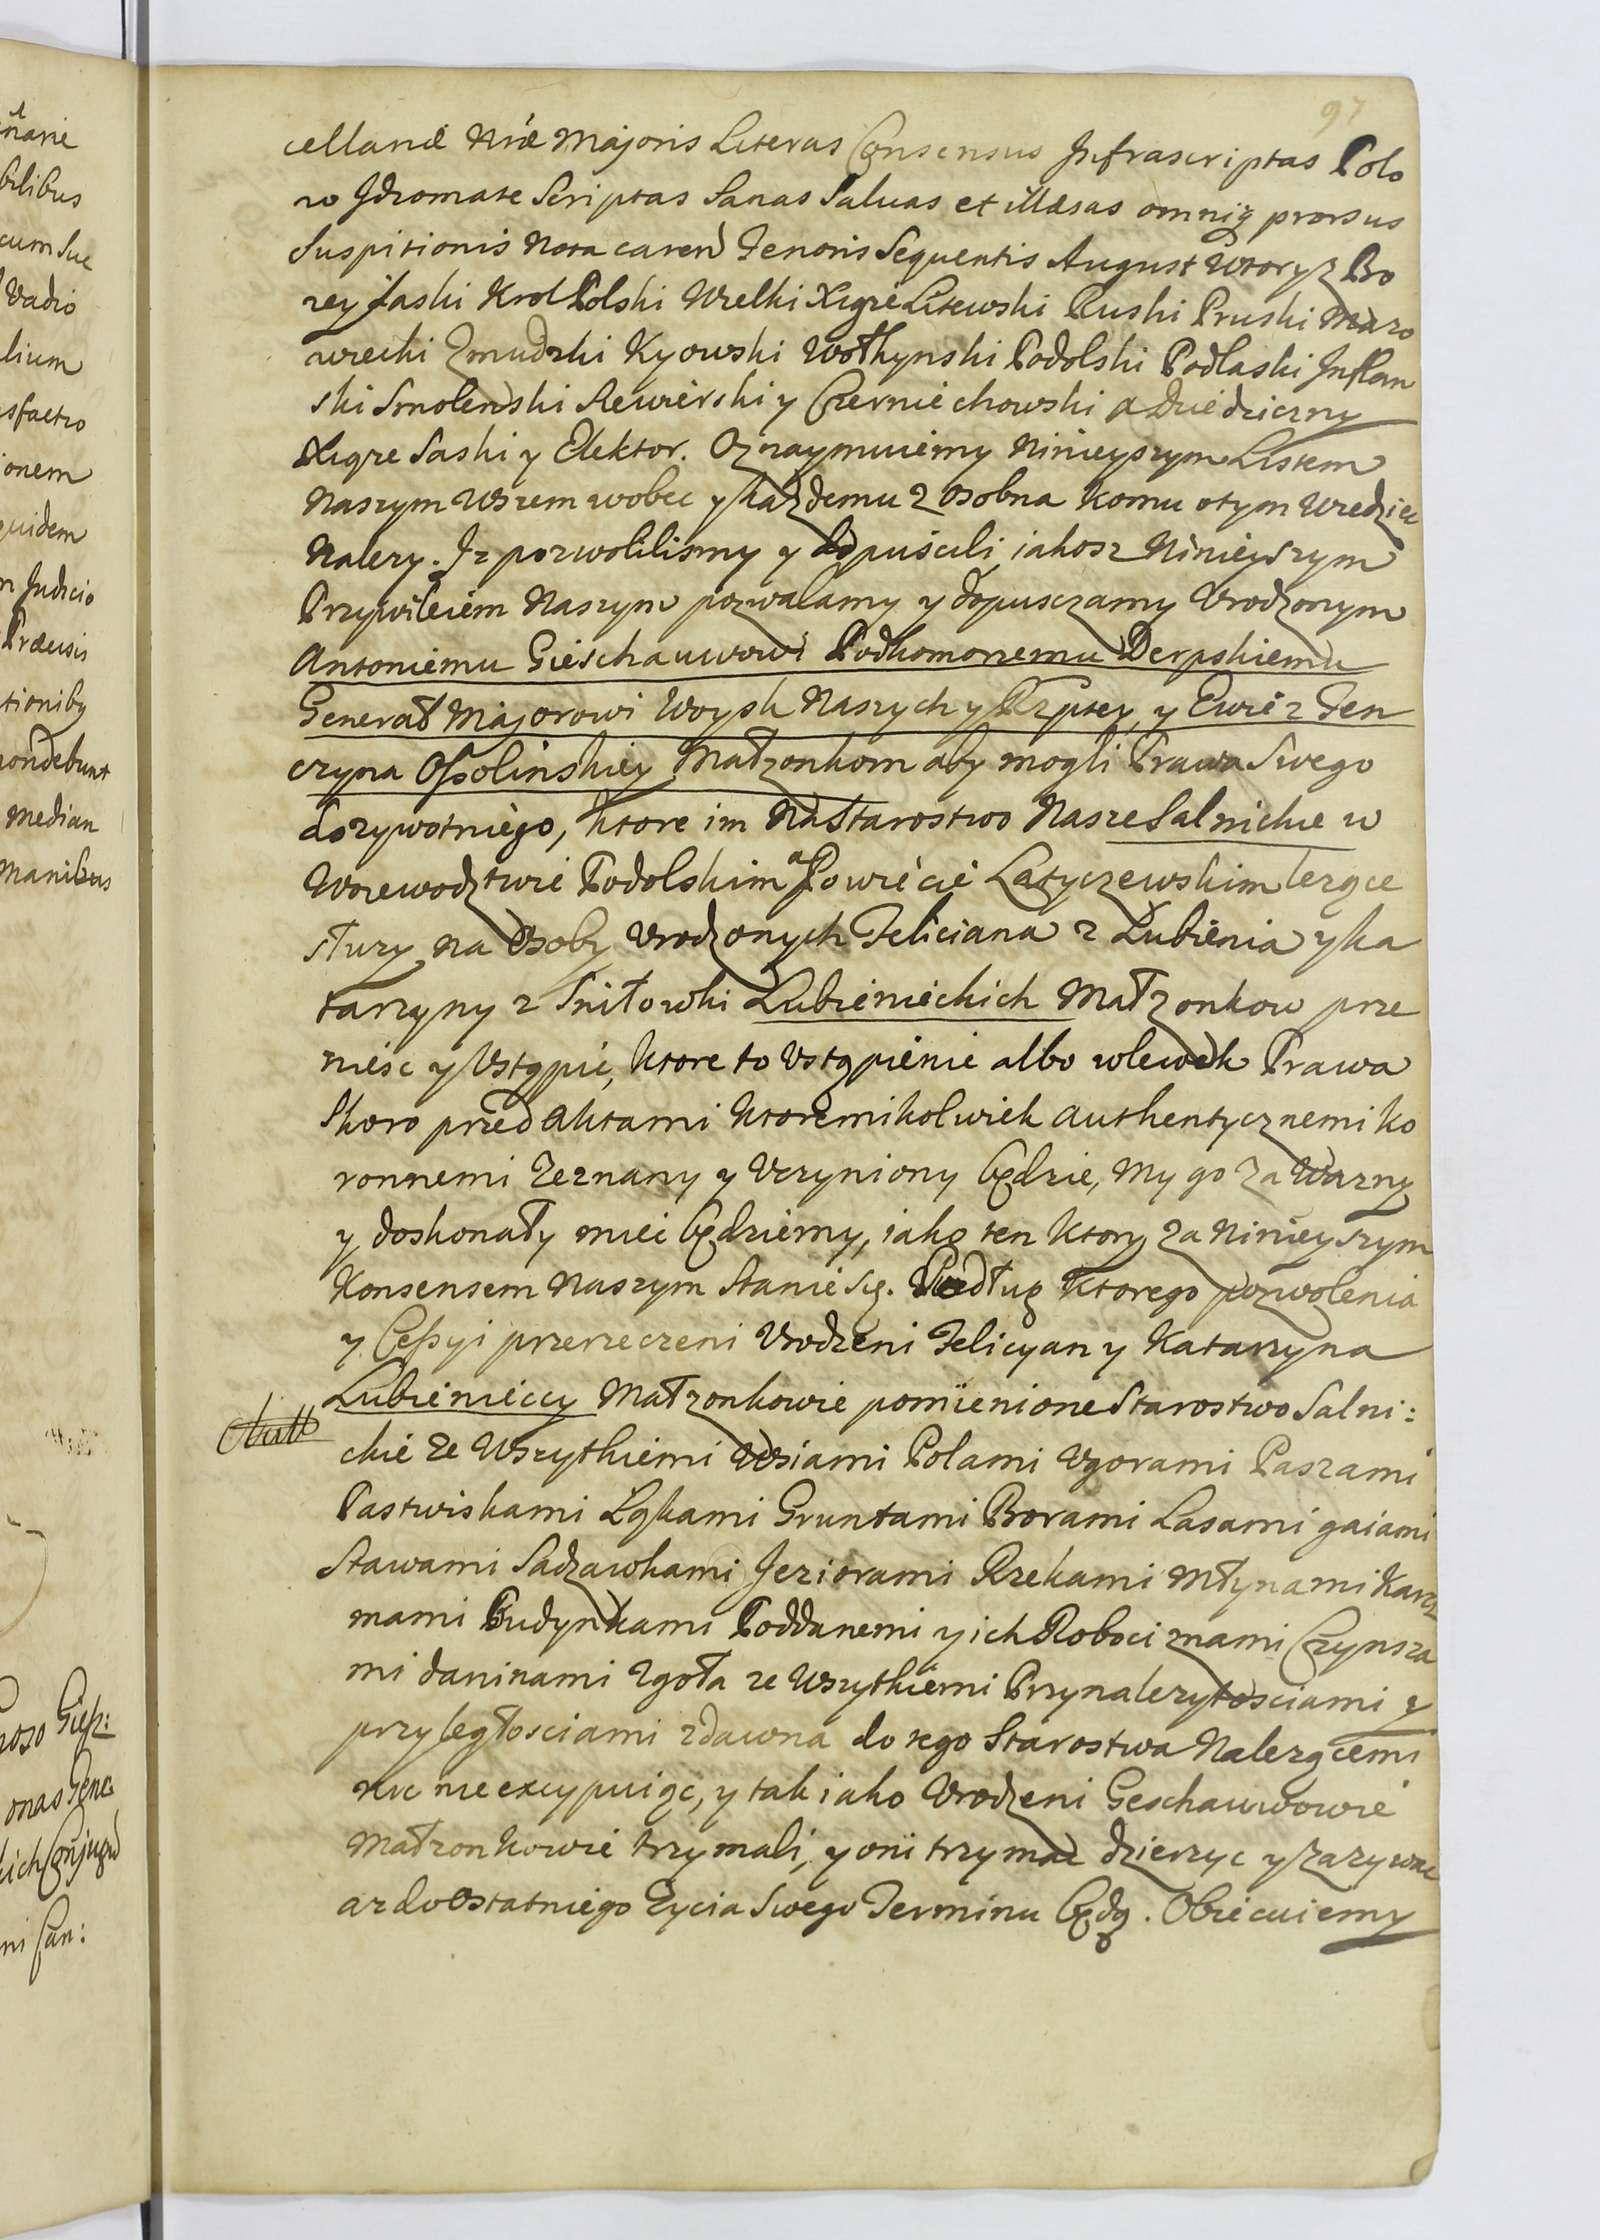 97
cellariæ Nræ Majoris Literas Consensus Infrascriptas Polo
no Idiomate Scriptas Sanas Saluas et illæsas omniq prorsus
Suspitionis Nota caren Tenoris Sequentis August Wtory z Bo
zey Łaski Krol Polski Wielki Xıąze Litewski Ruski Pruski Mazo
wiecki Zmudzki Kyowski Wołhynski Podolski Podlaski Inflan
ski Smolenski Siewierski y Czerniechowski a Dziedziczny
Xiąze Saski y Elektor. Oznaymuiemy Ninieyszym Listem
Naszym Wszem wobec y kazdemu z osobna komu o tym Wiedziec
Nalezy. Iz pozwolilismy y dopuscili iakosz Ninieyszym
Przywileiem Naszym pozwalamy y dopusczamy Vrodzonym
Antoniemu Gieschauwowi Podkomorzemu Derpskiemu
Generał Majorowi Woysk Naszych y Rzptey, y Ewie z Ten
czyna Ossolinskiey Małzonkom aby mogli Prawa Swego
dozywotniego, ktore im Na Starostwo Nasze Salnickie w
Woiewodztwie Podolskim a Powiecie Latyczewskim lezące
słuzy, na Osoby Vrodzonych Feliciana z Lubienia y ka
tarzyny z Sniłowki Lubienieckich Małzonkow prze
niesc y Vstąpic, ktore to Vstąpienie albo wlewek Prawa
Skoro przed Aktami ktoremikolwiek authentycznemi ko
ronnemi Zeznany y Vczyniony będzie, My go za Wazny
y doskonały miec będziemy, iako ten ktory za Ninieyszym
Konsensem Naszym Stanie Się. Według ktorego pozwolenia
y Cessyi przerzeczeni Vrodzeni Felicyan y Katarzyna
Lubienieccy Małzonkowie pomienione Starostwo Salni:
ckie Ze Wszytkiemi Wsiami Polami Vgorami Paszami
Pastwiskami Łąkami Gruntami Borami Lasami gaiami
Stawami Sadzawkami Jeziorami Rzekami Młynami Karcz
mami Budynkami Poddanemi y ich Robociznami Czynsza
mi daninami Zgoła ze Wszytkiemi Przynalezytosciami y
przyległosciami zdawna do tego Starostwa Nalezącemi
nic nie excypuiąc, y tak iako Vrodzeni Geschauwowie
Małzonkowie trzymali, y oni trzymac dzierzyc y Zazywac
az do Ostatniego Zycia Swego Terminu będą. Obiecuiemy